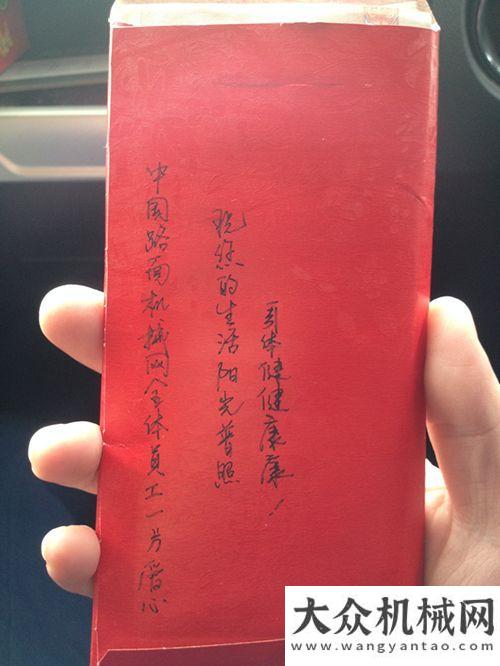 中国路面机械网全体员工一片爱心
祝您的生活阳光普照
身体健健康康！
大众机械网
www.wangyantao.com